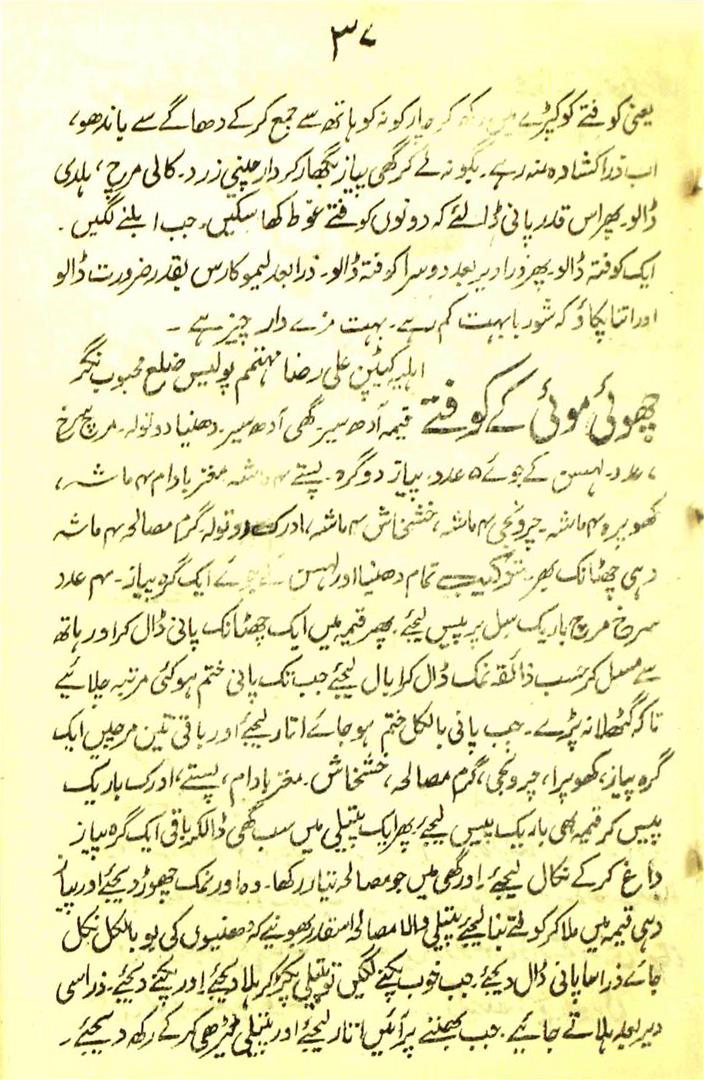 ۳۷
یعنی کوفتے کو کپڑے میں رکھ کر چار کونہ کو ہاتھ سے جمع کرکے دھاگے سے باندھو،
اب ذرا کشادہ منہ رہے۔ بگونہ لے کر گھی پیاز بگھار کر دار چینی زرد۔ کالی مرچ، ہلدی
ڈالو۔ پھر اس قدر پانی ڈالئے کہ دونوں کوفتے غوطہ کھا سکیں۔ جب ابلنے لگیں۔
ایک کوفتہ ڈالو۔ پھر ذرا دیر بعد دوسرا کوفتہ ڈالو۔ ذرا بعد لیمو کا رس بقدر ضرورت ڈالو
اور اتنا پکاؤ کہ شوربا بہت کم رہے۔ بہت مزے دار چیز ہے ۔
اہلیہ کیپٹن علی رضا مہتمم پولیس ضلع محبوب نگر
چھوئی موئی کے کوفتے قیمہ آدھ سیر۔ گھی آدھ سیر۔ دھنیا دو تولہ۔ مرچ سرخ
۷ عدد۔ لہسن کے جوئے ۵ عدد۔ پیاز دو گرہ۔ پستے ۴ ماشہ مغز بادام ۴ ماشہ،
کھوپرہ ۴ ماشہ۔ چرونجی ۴ ماشہ، خشخاش ۴ ماشہ، ادرک دو تولہ۔ گرم مصالحہ ۴ ماشہ
دہی چھٹانک بھر۔ ترکیب تمام دھنیا اور لہسن کے جوئے ایک گرہ پیاز۔ ۴ عدد
سرخ مرچ باریک سل پر پیس لیجئے۔ پھر قیمہ میں ایک چھٹانک پانی ڈال کر اور ہاتھ
سے مسل کر حسب ذائقہ نمک ڈال کر ابال لیجئے جب تک پانی ختم ہو کئی مرتبہ چلائیے
تاکہ گٹھلا نہ پڑے۔ جب پانی بالکل ختم ہو جائے اتار لیجئے اور باقی تین مرچیں ایک
گرہ پیاز، کھوپرا، چرونجی، گرم مصالحہ، خشخاش۔ مغز بادام، پستے، ادرک باریک
پیس کر قیمہ بھی باریک پیس لیجئے۔ پھر ایک پتیلی میں سب گھی ڈالکر باقی ایک گرہ پیاز
داغ کرکے نکال لیجئے۔ اور گھی میں جو مصالحہ تیار رکھا۔ وہ اور نمک چھوڑ دیجئے اور پیاز
دہی قیمہ میں ملا کر کوفتے بنا لیجئے پتیلی والا مصالحہ اسقدر بھونیے کہ دھنیوں کی بو بالکل نکل
جائے ذرا سا پانی ڈال دیجئے۔ جب خوب پکنے لگیں تو پتیلی پکڑ کر ہلا دیجئے۔ اور پکنے دیجئے۔ ذرا سی
دیر بعد ہلاتے جائیے۔ جب بھننے پر آئیں اتار لیجئے اور پتیلی ٹیڑھی کرکے رکھ دیجئے ۔